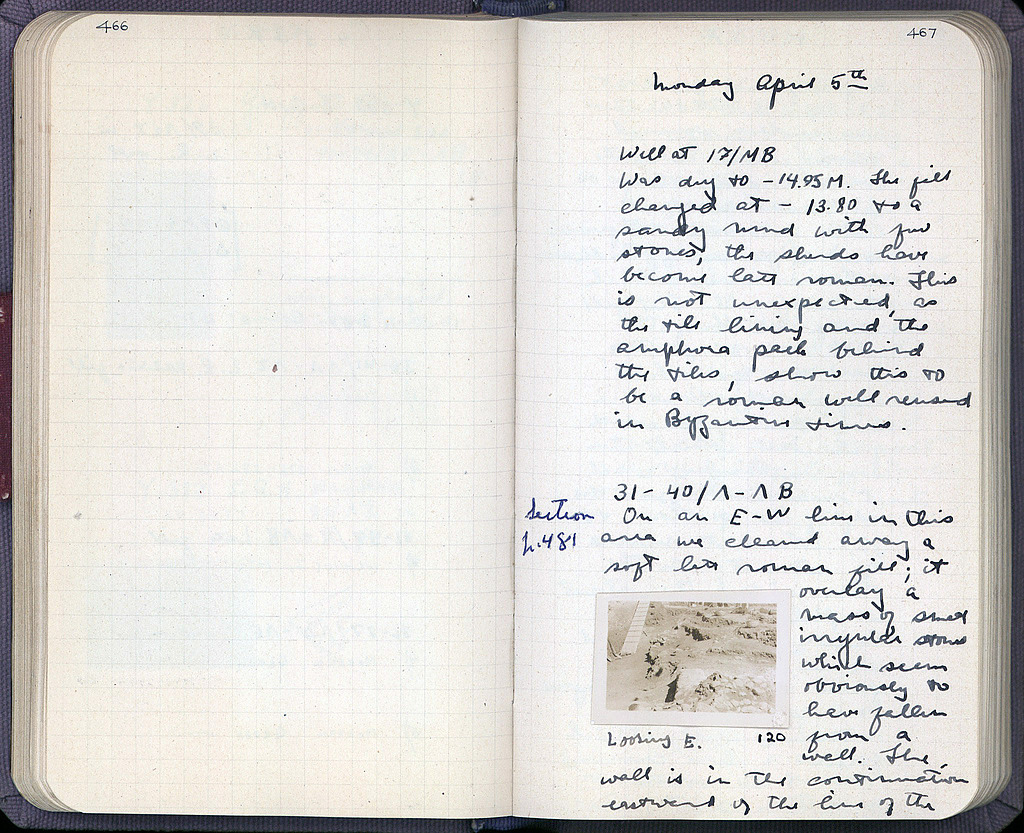 466
467
Monday April 5th
Well at 17/MB
Was dug to -14.95 M. The fill
changed at - 13.80 to a
sandy mud with few
stones, the sherds have
become late roman. This
is not unexpected, as
the tile lining and the
amphora pack behind
the tiles, show this to
be a roman well reused
in Byzantine times.
31-40/Λ-ΛB
Section
p. 481
On an E-W line in this
area we cleaned away a
soft late roman fill; it
overlay a
mass of small
irregular stones
which seem
obviously to
have fallen
from a
well. The
Looking E. 120
wall is in the continuation
eastward of the line of the